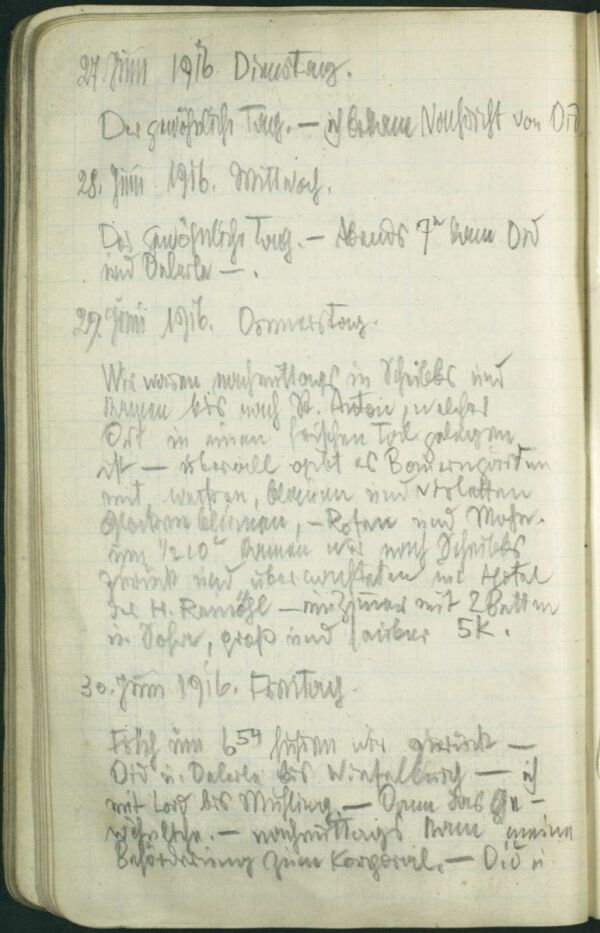 27 Juni 1916. Dienstag.
Der gewöhnliche Tag. — ich bekam Nachricht von Did.
28. Juni 1916. Mittwoch.
Der gewöhnliche Tag. — Abends 7h kam Did
und —.
29 Juni 1916. Donnerstag.
Wir waren nachmittags in Scheibbs und
kamen bis nach St. Anton, welcher
Ort in einen Tal gelegen
ist — überall gibt es Bauerngärten
mit weissen, blauen und violetten
Glockenblumen, — Rosen und Mohn.
um 1/2 10h kamen wir nach Scheibbs
zurück und übernachteten im Hotel
der H. — ein Zimmer mit 2 Betten
u. Sofa, groß und sauber 5K.
30. Juni 1916. Freitag.
Früh um 6 54 fuhren wir zurück —
Did u. bis Wieselburg — ich
mit Lord bis Mühling. — Dann das Ge-
wöhnliche. — nachmittags kam meine
Beförderung zum Korporal. — Did u